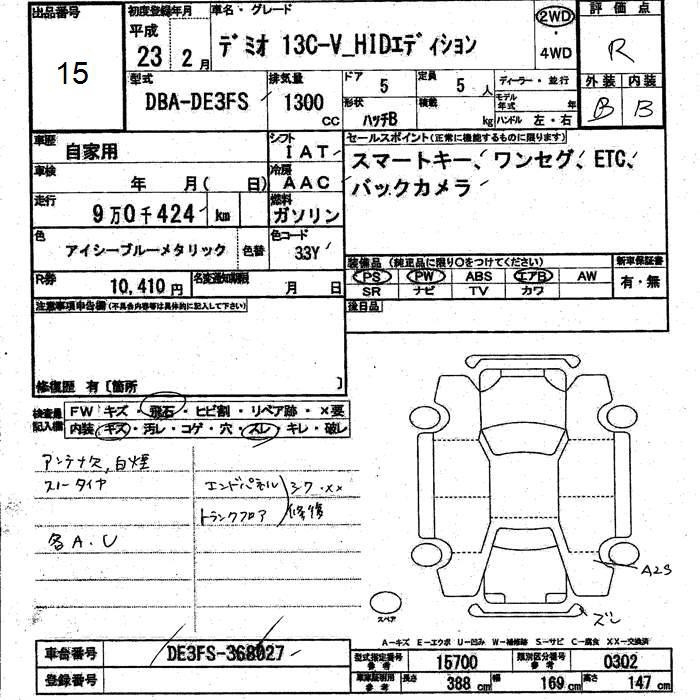 出品番号
15
初度登録年月
平成
23 2月
車名・グレード
デミオ 13C-V_HIDエディション
2WD
・
4WD
評価点
R
外装 内装
B B
型式
DBA-DE3FS
排気量
1300
CC
ドア
5
定員
5人
ディーラー・並行
モデル年式 年
形状
ハッチB
積載
kg
ハンドル 左・右
車歴
自家用
シフト
IAT
車検
年 月( 日)
冷房
AAC
走行
9万0千424 km
燃料
ガソリン
色
アイシーブルーメタリック
色替
色コード
33Y
R券
10,410円
名変通知期限
月 日
セールスポイント(正常に機能するものに限ります)
スマートキー、ワンセグ、ETC、
バックカメラ
装備品(純正品に限り○をつけてください)
PS PW ABS エアB AW
SR ナビ TV カワ
新車保証書
有・無
後日品
注意事項申告欄(不具合内容等は具体的に記入して下さい)
修復歴 有〔箇所 〕
検査員記入欄
FW キズ・飛石・ヒビ割・リペア跡・×要
内装 キズ・汚レ・コゲ・穴・スレ・キレ・破レ
アンテナ欠,白煙
スノータイヤ
エンドパネル
トランクフロア
シワ・××
修復
各A.U
A2S
ズレ
スペア
A-キズ E-エクボ U-凹み W-補修跡 S-サビ C-腐食 XX-交換済
車台番号
DE3FS-368027
登録番号
型式指定番号
参考
15700
類別区分番号
参考
0302
車庫証明用
参考
長さ 388cm
幅 169cm
高さ 147cm